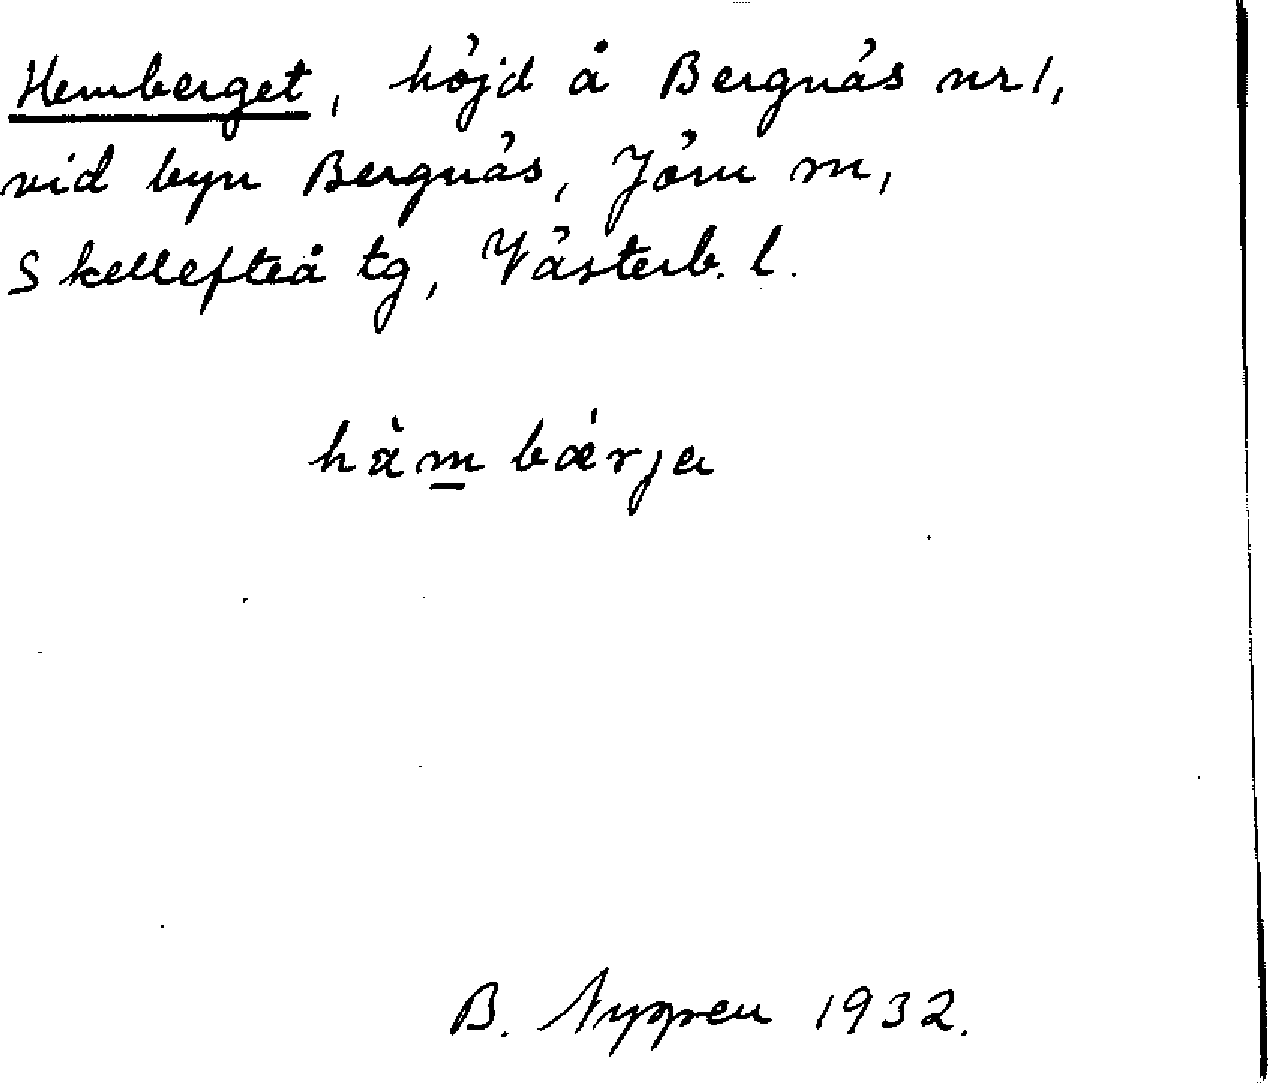 Hemberget, höjd å Bergnäs nr 1,
vid byn Bergnäs, Jörn m,
Skellefteå tg, Västerb. l.
hàm bǽrja
B. Nygren 1932.